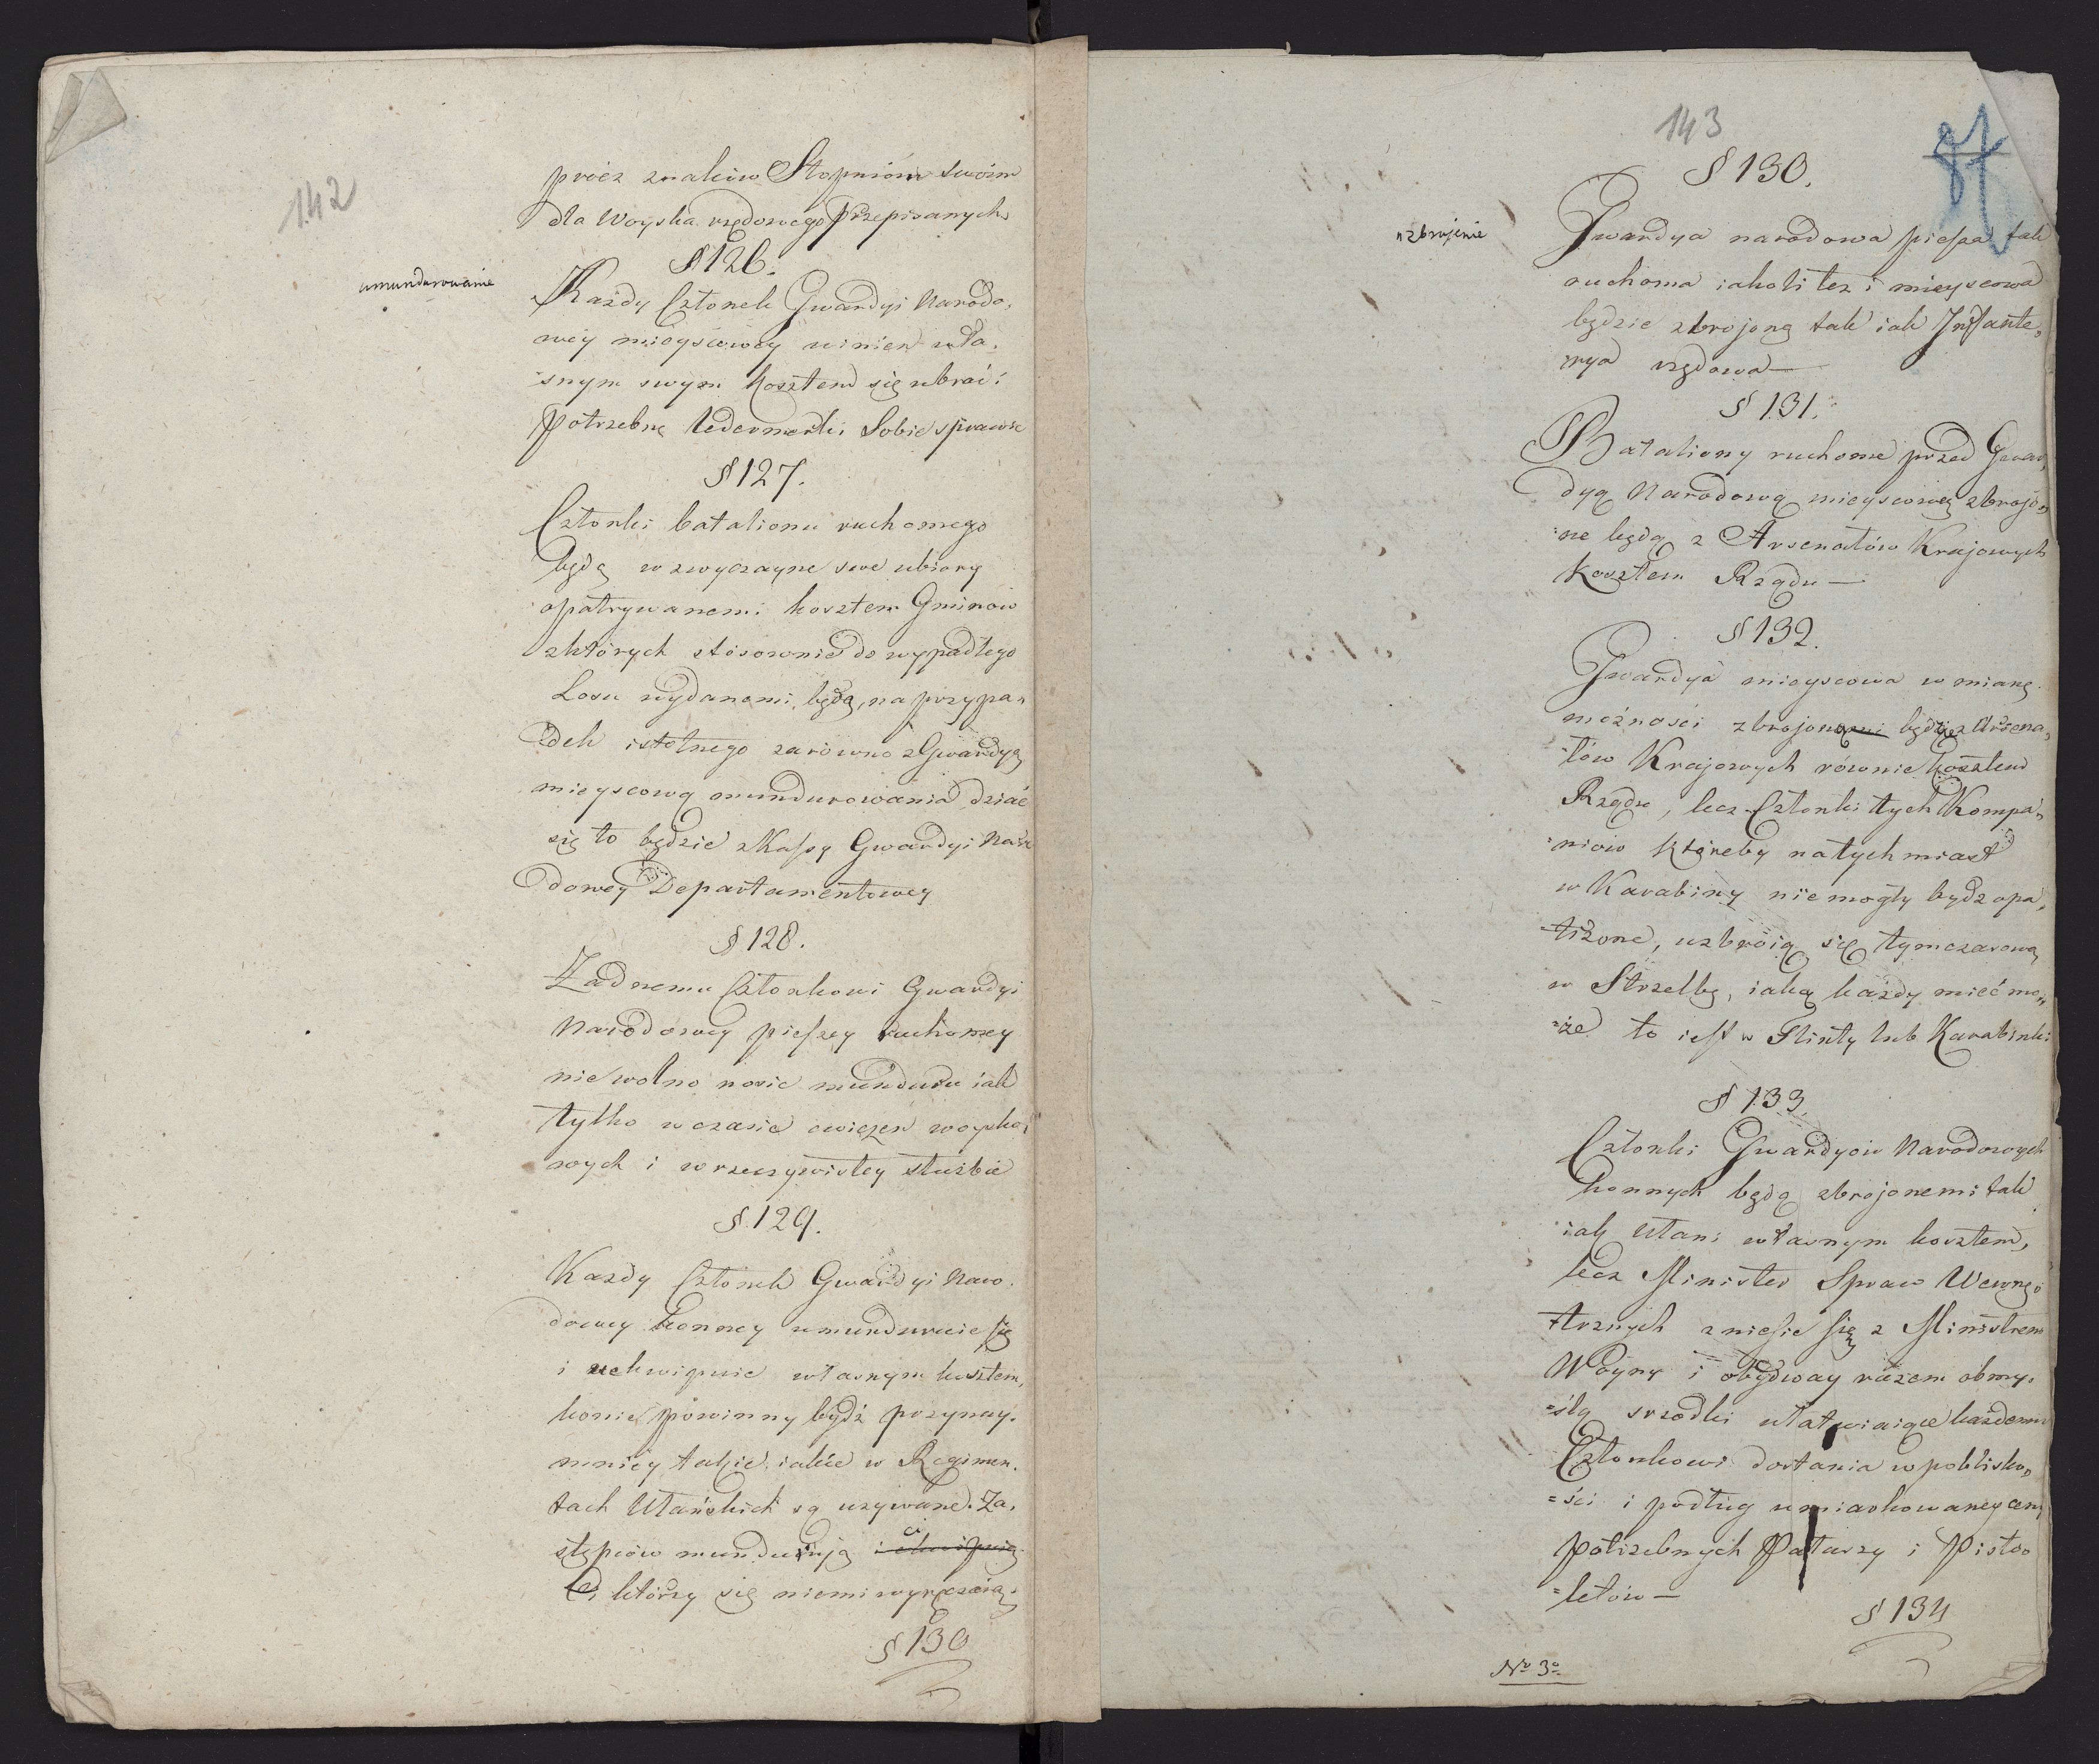 142
prócz znaków Stopniów swoim
dla Woyska rzędowego Przepisanych
§ 126.
umundurowanie
Każdy Członek Gwardyi Narodo,
wey mieyscowey winien wła,
snym swym kosztem się ubrać i
Potrzebne lederwerki Sobie sprawić
§ 127.
Członki batalionu ruchomego
będą w zwyczayne swe ubiory
opatrywanemi kosztem Gminów
z których stósownie do wypadłego
Losu wydanemi będą, na przypa,
dek istotnego zarówno z Gwardyą
mieyscową mundurowania dziać
się to będzie z Kassy Gwardyi Naro
dowey Departamentowey
§ 128.
Żadnemu Członkowi Gwardyi
Narodowey pieszey ruchomey
nie wolno nosić munduru iak
tylko w czasie cwiczeń woysko,
wych i w rzeczywistey służbie
§. 129.
Kazdy Członek Gwardyi Naro.
dowey konney umunduruie się
i uekwipuie własnym kosztem,
konie powinny bydź przynay.
mniey takie iakie w Regimen.
tach Ułańskich są uzywane. Za,
stępców mundurują i ekwipuią
Ci którzy się niemi wyręczaią.
§ 130
143
87
§ 130.
uzbrojenie
Gwardya narodowa piesza tak
ruchoma iakoli tez i mieyscowa
będzie zbrojoną tak iak Infante,
rya rzędowa —
§ 131.
Bataliony ruchome przed Gwar,
dyą Narodową mieyscową zbrojo,
:ne będą z Arsenałów Krajowych
Kosztem Rządu —
§ 132.
Gwardya mieyscowa w miarę
możności zbrojoną będzie z Arsena,
:łów Krajowych równie kosztem
Rządu, lecz Członki tych Kompa,
:niów któreby natychmiast
w Karabiny nie mogły bydz opa,
:trzone, uzbroią się tymczasową
w Strzelbę, iaką każdy mieć mo,
:że to iest w Flinty lub Karabinki
§ 133.
Członki Gwardyów Narodowych
konnych będą zbrojonemi tak
iak Ułani własnym kosztem,
lecz Minister Spraw Wewnę,
trznych zniesie się z Ministrem
Woyny i obydway razem obmy,
=ślą srzodki ułatwiaiące każdemu
Członkowi dostania w poblisko,
=ści i podług umiarkowaney ceny
Potrzebnych Pałaszy i Pisto,
=letów —
§ 134
No 3o